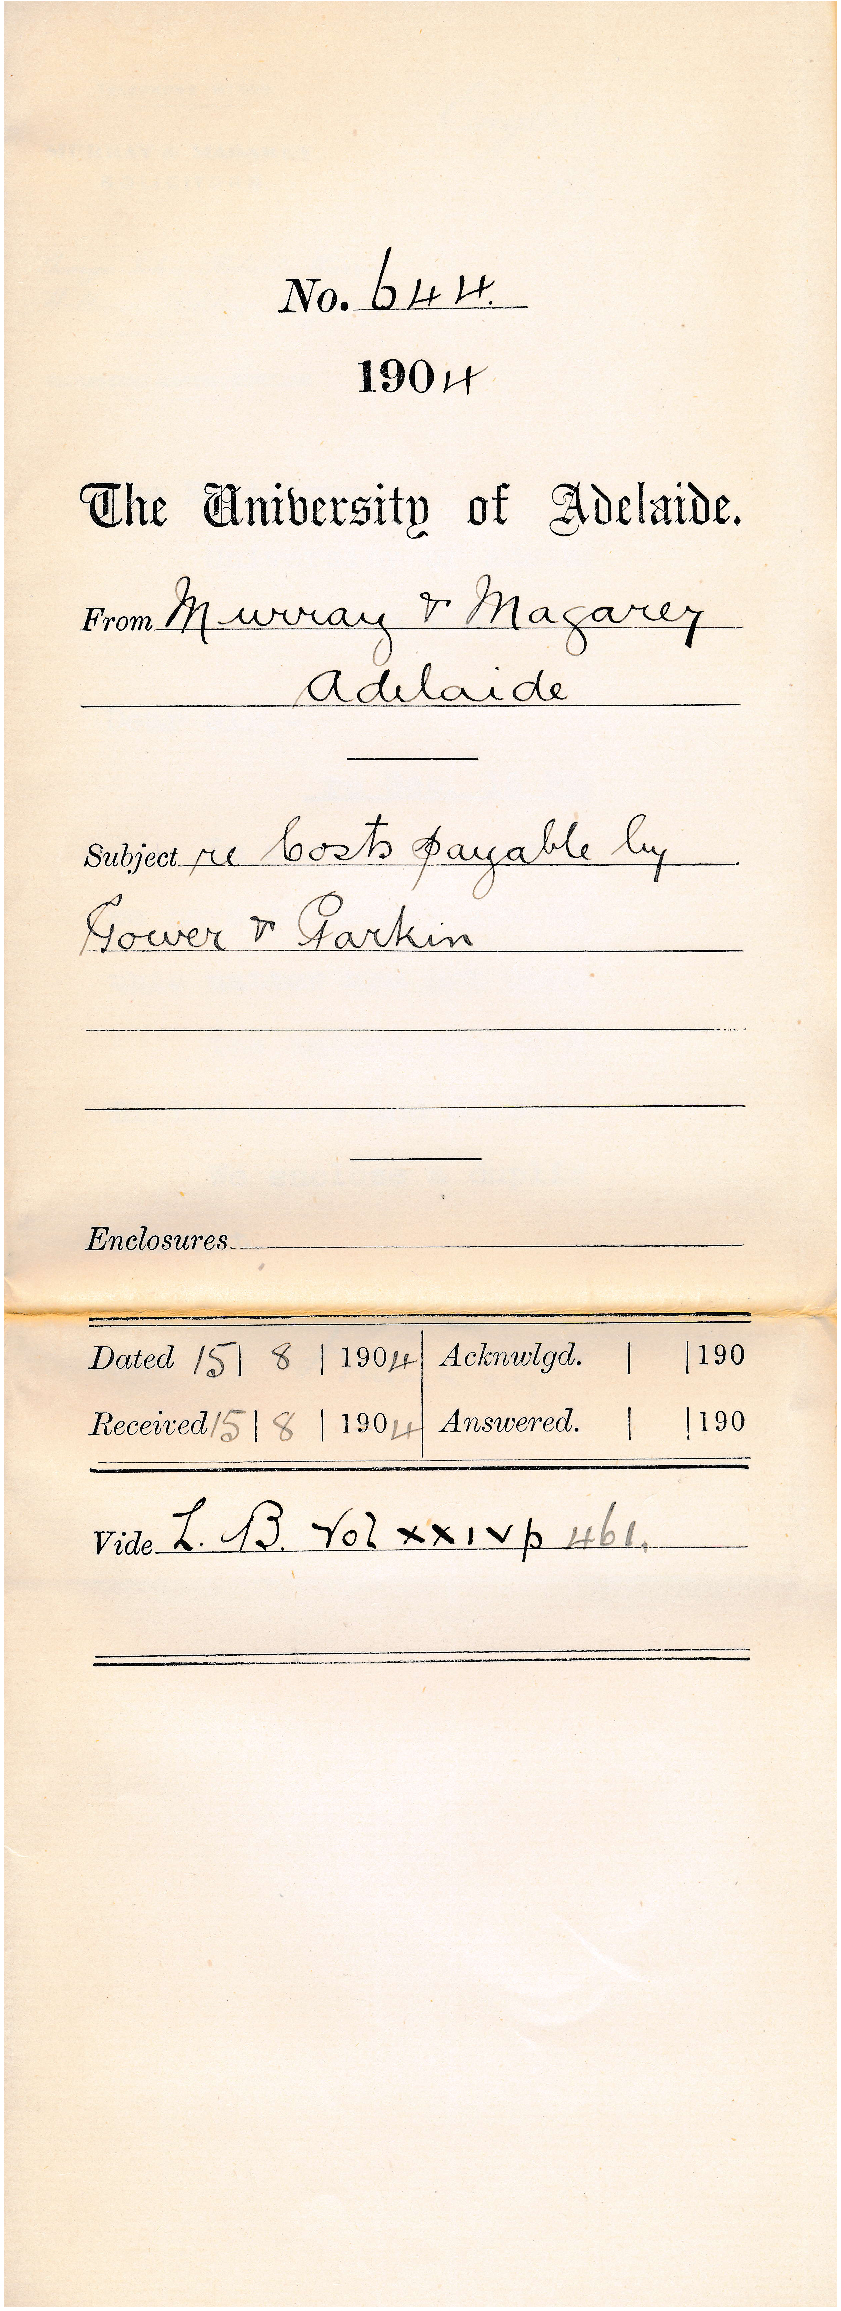 No. 644.
1904
The University of Adelaide.
From Murray & Magarey
Adelaide
Subject re Costs payable by
Gower & Parkin
Enclosures
Dated 15 | 8 | 1904 | Acknwlgd. | | 190
Received 15 | 8 | 1904 | Answered. | | 190
Vide L. B. Vol XXIV p 461.